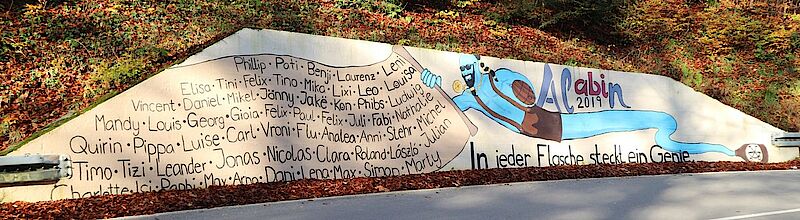 Phillip · Poti · Benji · Laurenz · Leni
Elisa · Tini · Felix · Tino · Mika · Lixi · Leo · Louisa
Vincent · Daniel · Mikel · Jonny · Jakè · Kon · Phibs · Ludwig
Mandy · Louis · Georg · Gioia · Felix · Paul · Felix · Juli · Fabi · Nathalie
Quirin · Pippa · Luise · Carl · Vroni · Flu · Analea · Anni · Stehr · Michel
Timo · Tizi · Leander · Jonas · Nicolas · Clara · Roland · László · Julian
Charlotte · Isi · Raphi · Max · Arno · Dani · Lena · Max · Simon · Marty
ALabin
2019
In jeder Flasche steckt ein Genie...